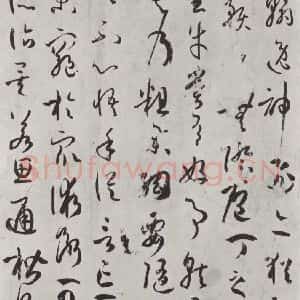 翰逸神飛亦猶
無際庖丁之
牛嘗有好事就
乃粗舉綱要隨
不心悟手從言忘
窮於眾術斷可
詣矣若思通楷
Shufawang.CN